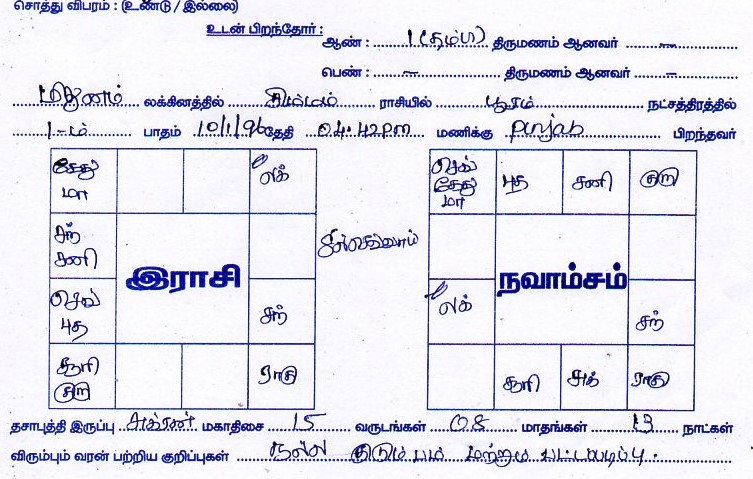 சொத்து விபரம் : (உண்டு / இல்லை)
உடன் பிறந்தோர் :
ஆண் : 1 (தம்பி) திருமணம் ஆனவர் –
பெண் : – திருமணம் ஆனவர் –
மிதுனம் லக்கினத்தில் சிம்மம் ராசியில் பூரம் நட்சத்திரத்தில்
1-ம் பாதம் 10/1/96 தேதி 04.42 PM மணிக்கு Punjab பிறந்தவர்
கேது மா
லக்
சந் சனி
இராசி
செவ் புத
சந்
சூரி குரு
ராகு
செவ் கேது மா
புத
சனி
குரு
லக்
நவாம்சம்
சந்
சூரி
சுக்
ராகு
தசாபுத்தி இருப்பு சுக்ரன் மகாதிசை 15 வருடங்கள் 08 மாதங்கள் 13 நாட்கள்
விரும்பும் வரன் பற்றிய குறிப்புகள் நல்ல குடும்பம் மற்றும் பட்டபடிப்பு.